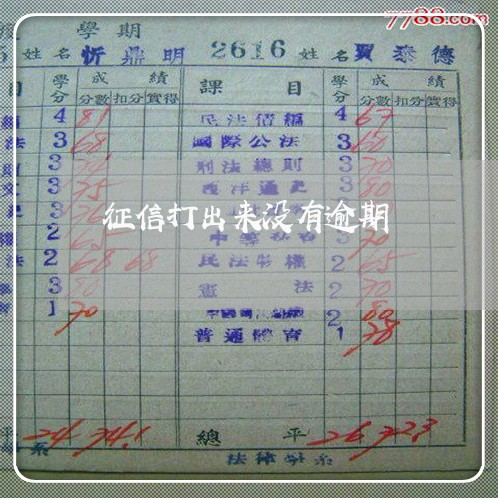 7788.com
學期
姓名 忻鼎明 2616 姓名 賈泰德
目 學分 成績 課目 學分 成績
分數 扣分 實得 分數 扣分 實得
4 81 民法債編 4 67
法 3 68 國際公法 3 60
3 刑法總則 3 70
3 75 西洋通史 3 80
3
征信打出来没有逾期
2 65 70
法 2 68 68 民法物權 2 65
3 80 憲法 2 70
1 70 2 80
普通體育 1 78
平 24 74.1 總平 26 72.3
系 法律學系